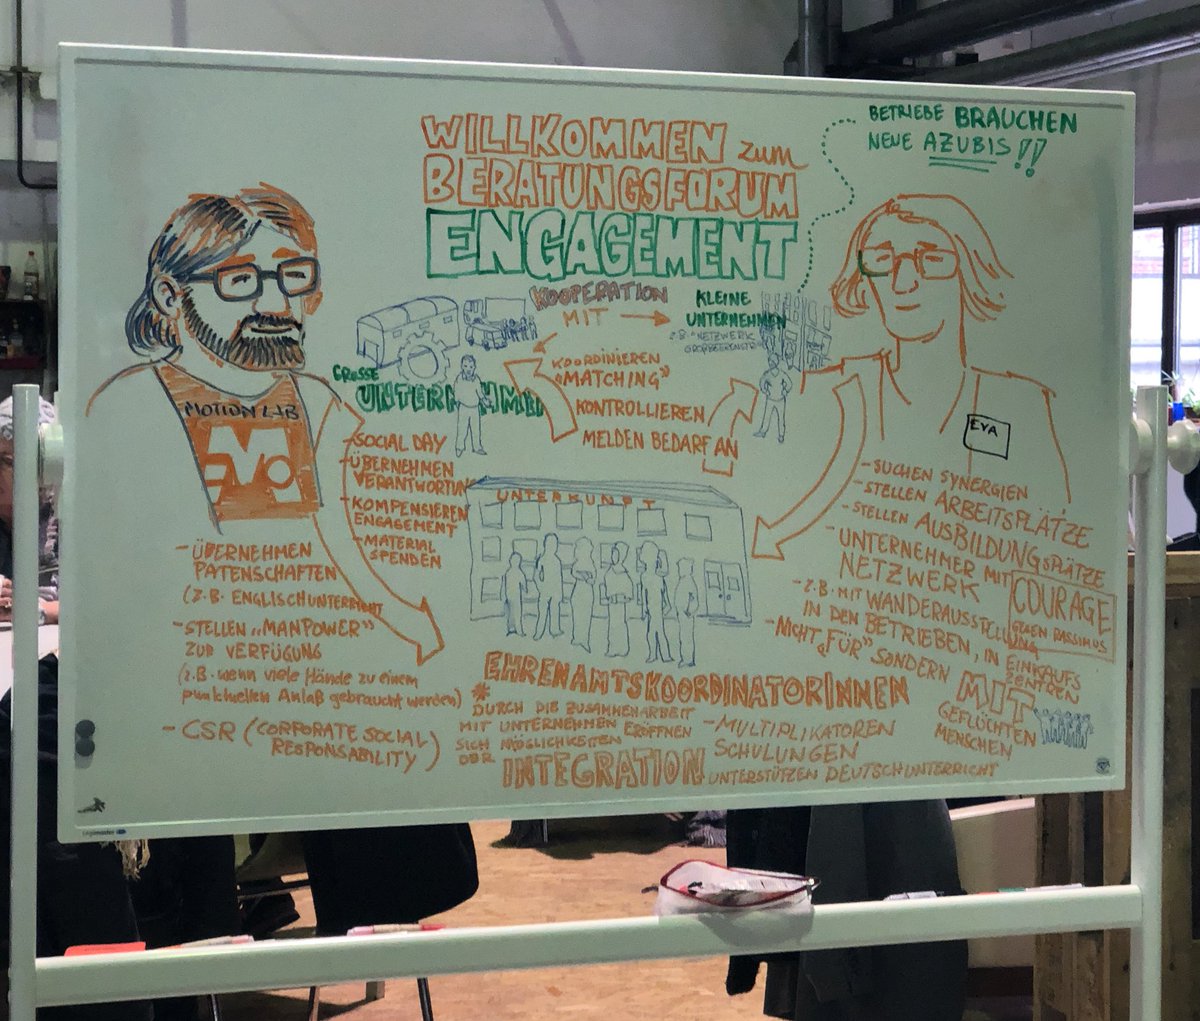 WILLKOMMEN ZUM
BERATUNGSFORUM
ENGAGEMENT
BETRIEBE BRAUCHEN
NEUE AZUBIS!!
KOOPERATION
MIT
KLEINE
UNTERNEHMEN
Z.B. "NETZWERK
GROSSE
UNTERNEHMEN
KOORDINIEREN
"MATCHING"
KONTROLLIEREN
MELDEN BEDARF AN
MOTION LAB
MO
EVA
- SOCIAL DAY
- ÜBERNEHMEN
VERANTWORTUNG
- KOMPENSIEREN
ENGAGEMENT
- MATERIAL
SPENDEN
UNTERKUNFT
- ÜBERNEHMEN
PATENSCHAFTEN
(Z.B. ENGLISCHUNTERRICHT
- STELLEN „MANPOWER"
ZUR VERFÜGUNG
(z.B. wenn viele Hände zu einem
punktuellen Anlaß gebraucht werden)
- CSR (CORPORATE SOCIAL
RESPONSABILITY)
- SUCHEN SYNERGIEN
- STELLEN ARBEITSPLÄTZE
- STELLEN AUSBILDUNGSPLÄTZE
- UNTERNEHMER MIT
NETZWERK
COURAGE
GEGEN RASSIMUS
- Z.B. MIT WANDERAUSSTELLUNG
IN DEN BETRIEBEN, IN EINKAUFS
ZENTREN
- NICHT „FÜR" SONDERN
MIT
GEFLÜCHTEN
MENSCHEN
EHRENAMTSKOORDINATORINNEN
* DURCH DIE ZUSAMMENARBEIT
MIT UNTERNEHMEN ERÖFFNEN
SICH MÖGLICHKEITEN
DER
INTEGRATION
- MULTIPLIKATOREN
SCHULUNGEN
UNTERSTÜTZEN DEUTSCHUNTERRICHT
Legamaster